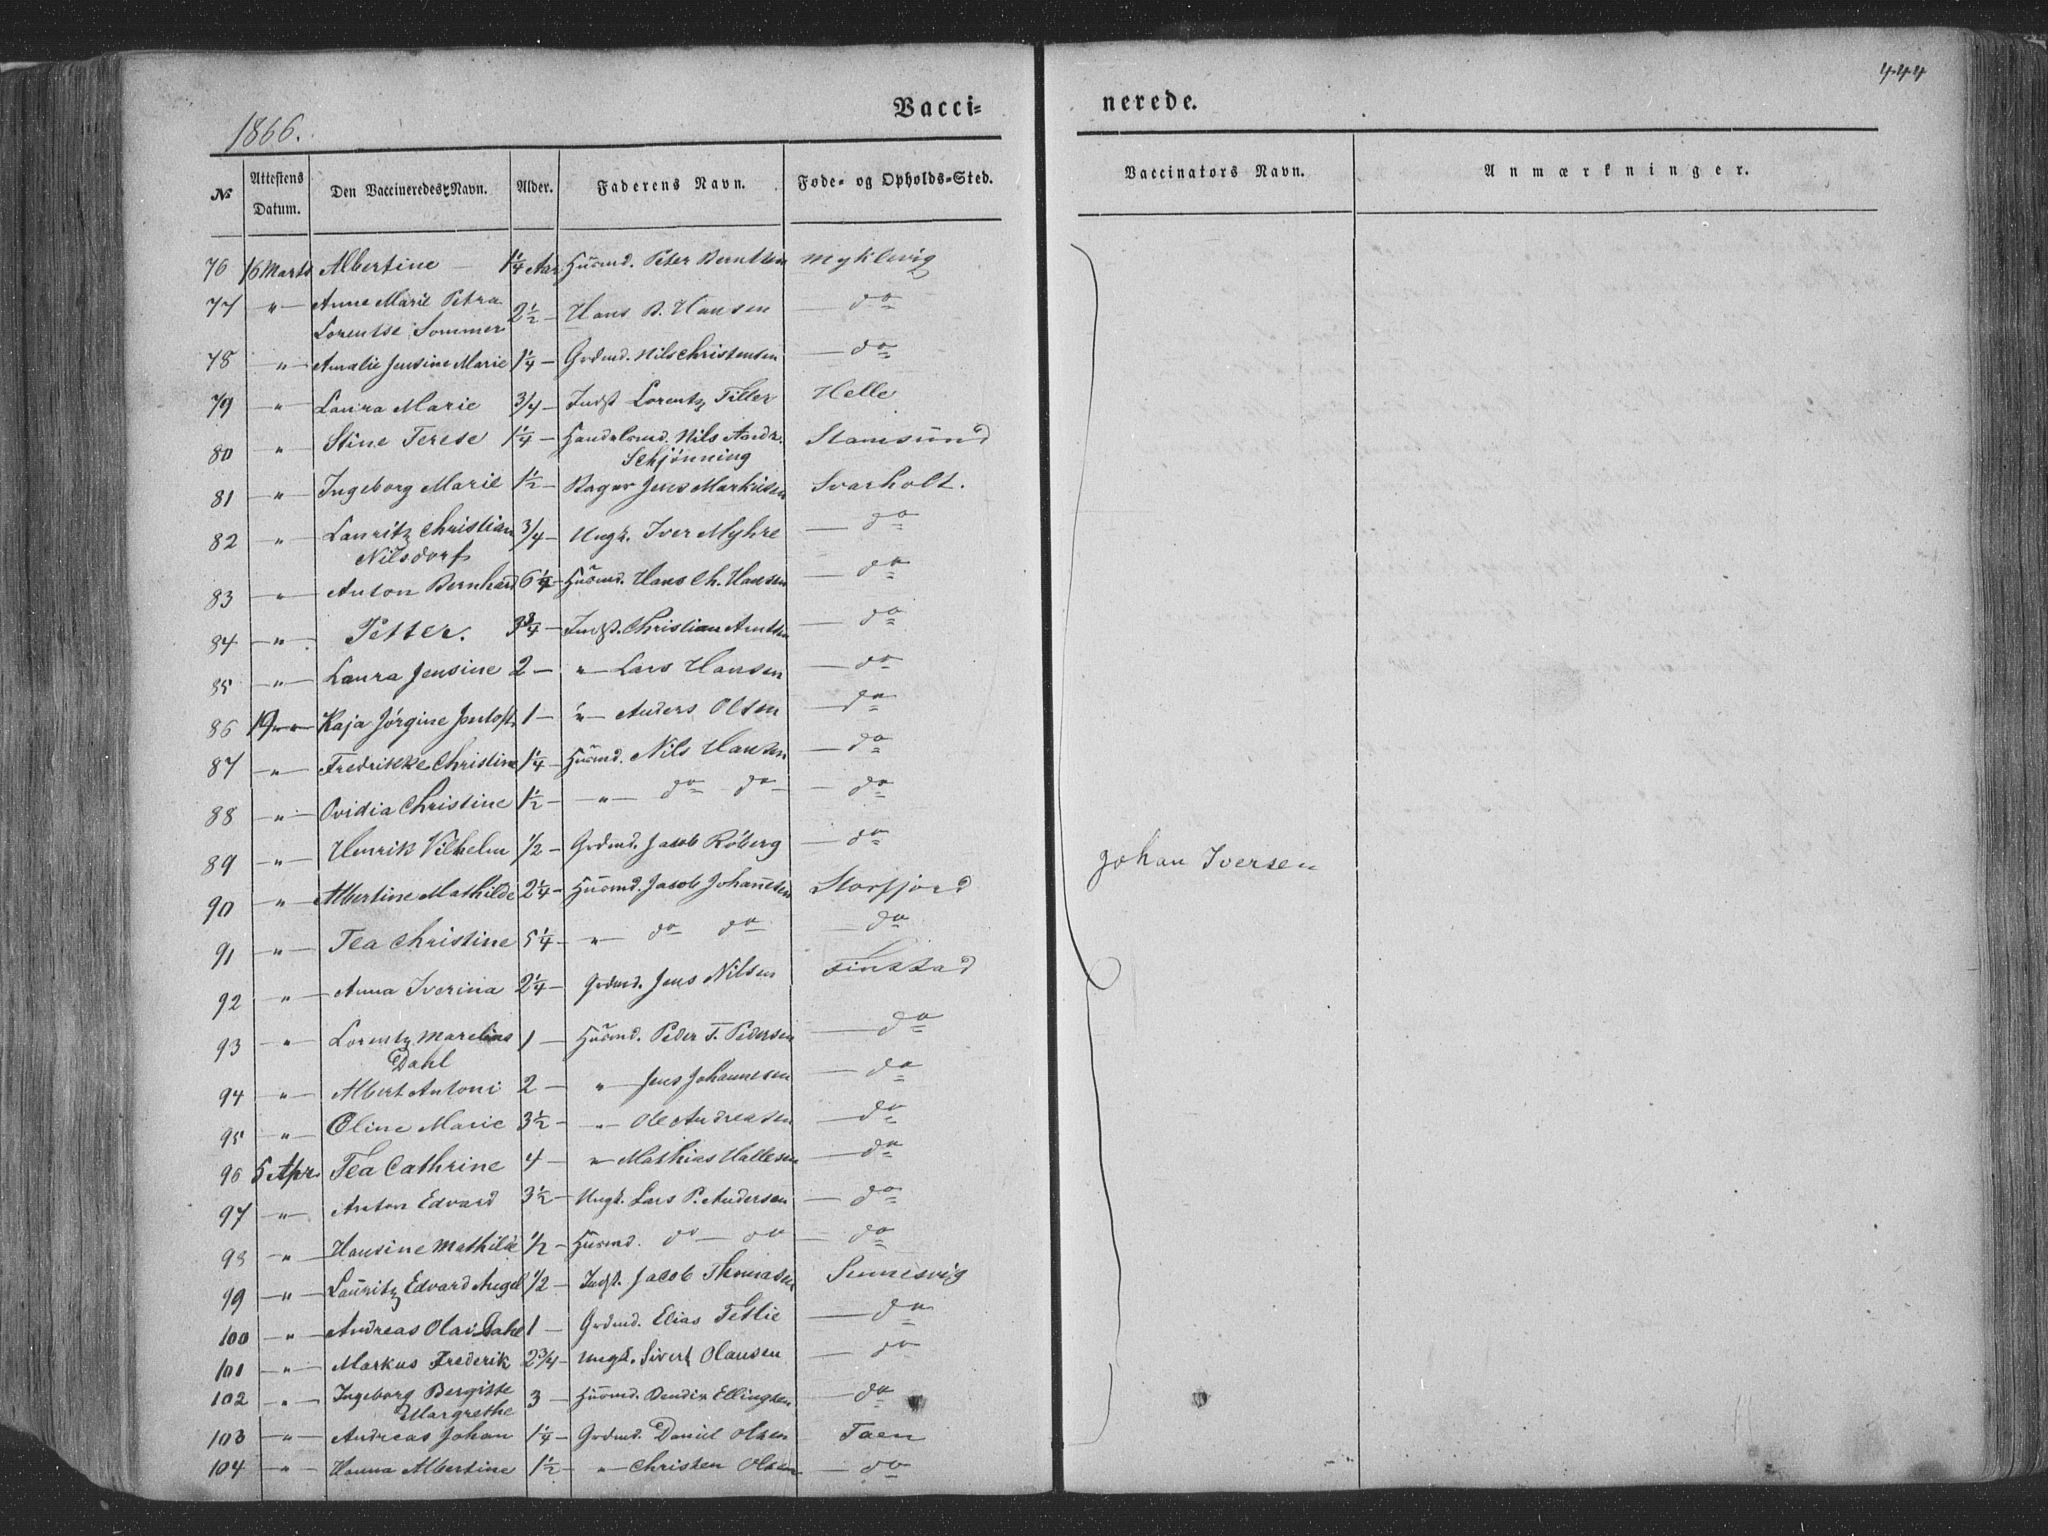 444
1866.
Vacci- nerede.
No Attestens Datum. Den Vaccineredes Navn. Alder. Faderens Navn. Føde- og Opholds-Sted. Vaccinators Navn. Anmærkninger.
76 16 Marts Albertine — 1¼ Aar Huusmd. Peter Berntsen Myklevig
77 " Anne Marie Petra
Lorentse Sommer 2½ — Hans B. Hansen — do
78 " Amalie Jensine Marie 1¼ — Grdmd. Nils Christensen — do
79 " Laura Marie 3/4 — Indst Lorentz Tiller Helle
80 " Stine Terese 1¼ — Handelsmd. Nils Andr.
Schjønning Stamsund
81 " Ingeborg Marie 1½ — Bager Jens Markusen Svarholt.
82 " Lauritz Christian
Nilsdorf 3/4 — Ungk. Iver Myhre — do
83 " Anton Bernhard 6¼ — Huusmd. Hans Ch. Hansen — do
84 " Petter. 3¾ — Indst. Christian Arntsen — do
85 " Laura Jensine 2 — " Lars Hansen — do
86 19 " Kaja Jørgine 1 — " Anders Olsen — do
87 " Fredrikke Christine 1¼ — Huusmd. Nils Hansen — do
88 " Ovidia Christine 1½ — " do do — do
89 " Henrik Vilhelm 1/2 — Grdmd. Jacob Röberg — do
90 " Albertine Mathilde 2¼ — Huusmd. Jacob Johannesen Storfjord
91 " Tea Christine 5¼ — " do do — do
92 " Anna Iverina 2¼ — Grdmd. Jens Nilsen Finstad
93 " Lorentz Marelius
Dahl 1 — Huusmd. Peder T. Pedersen — do
94 " Albert Antoni 2 — " Jens Johannesen — do
95 " Oline Marie 3½ — " Ole Andreasen — do
96 5 Apr. Tea Cathrine 4 — " Mathias Hallesen — do
97 " Anton Edvard 3½ — Ungk. Lars P. Andersen — do
98 " Hansine Mathilde 1/2 — Huusmd. do do — do
99 " Lauritz Edvard Angel 1/2 — Indst. Jacob Thomasen Sennesvig
100 " Andreas Olai Dahl 1 — Grdmd. Elias Tetlie — do
101 " Markus Frederik 2¾ — Ungk. Sivert Olausen — do
102 " Ingeborg Bergitte
Margrethe 3 — Huusmd. Bendix Ellingsen — do
103 " Andreas Johan 1¼ — Grdmd. Daniel Olsen Taen
104 " Hanna Albertine 1½ — " Christen Olsen — do
Johan Iversen